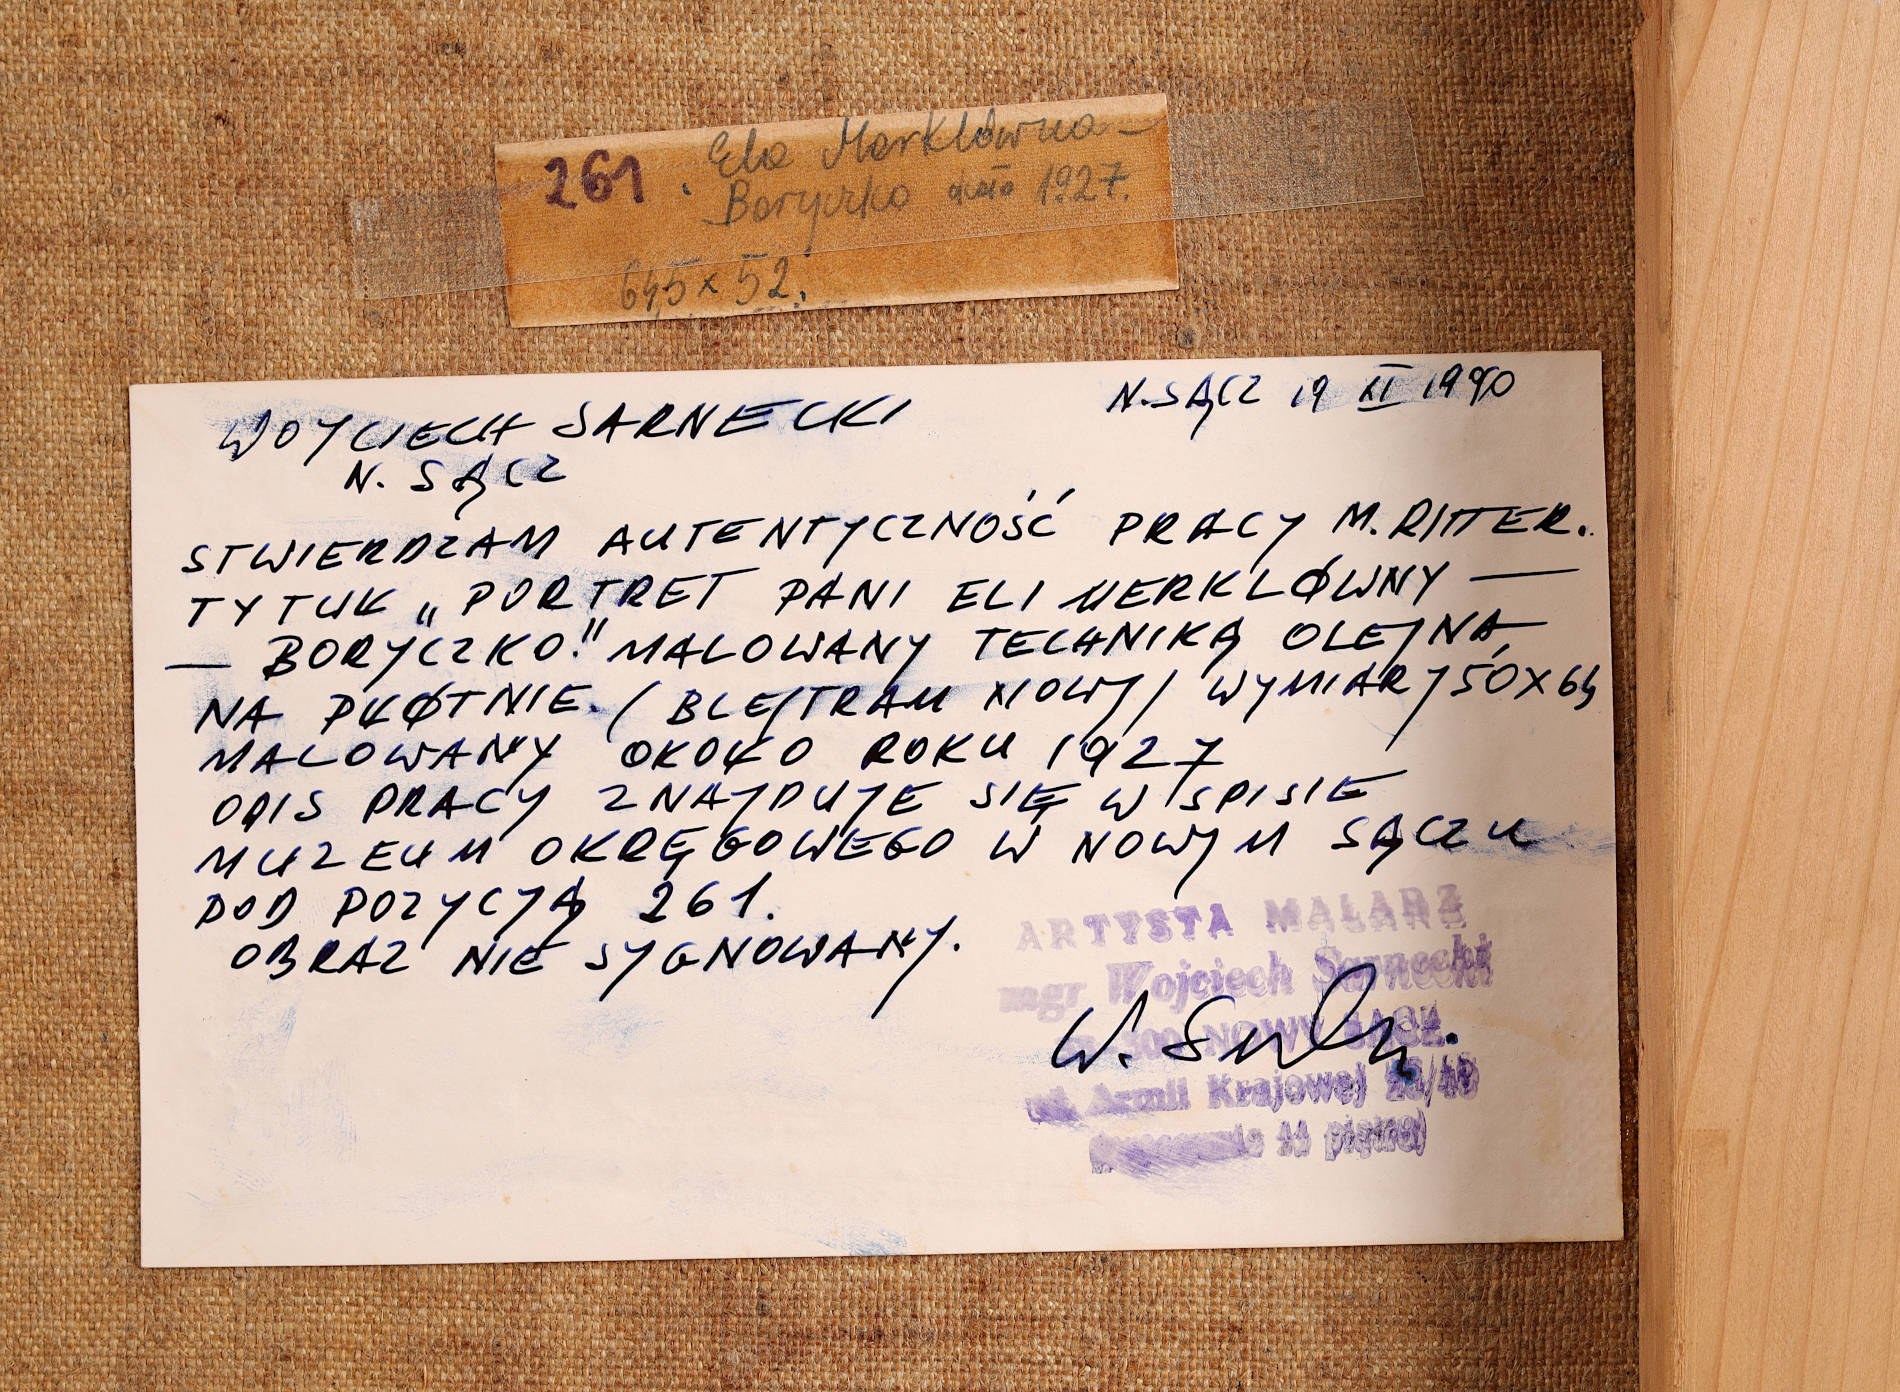 261. Ela Marklówna -
Boryczko około 1927.
64,5 x 52.
N. SĄCZ 19 XI 1990
WOJCIECH SARNECKI
N. SĄCZ
STWIERDZAM AUTENTYCZNOŚĆ PRACY M. RITTER.
TYTUŁ „PORTRET PANI ELI MERKLÓWNY —
— BORYCZKO." MALOWANY TECHNIKĄ OLEJNĄ
NA PŁÓTNIE. / BLEJTRAM NOWY / WYMIARY 50 X 64
MALOWANY OKOŁO ROKU 1927
OPIS PRACY ZNAJDUJE SIĘ W SPISIE
MUZEUM OKRĘGOWEGO W NOWYM SĄCZU
POD POZYCJĄ 261.
OBRAZ NIE SYGNOWANY.
ARTYSTA MALARZ
mgr Wojciech Sarnecki
NOWY SĄCZ
ul. Armii Krajowej
11 piętro)